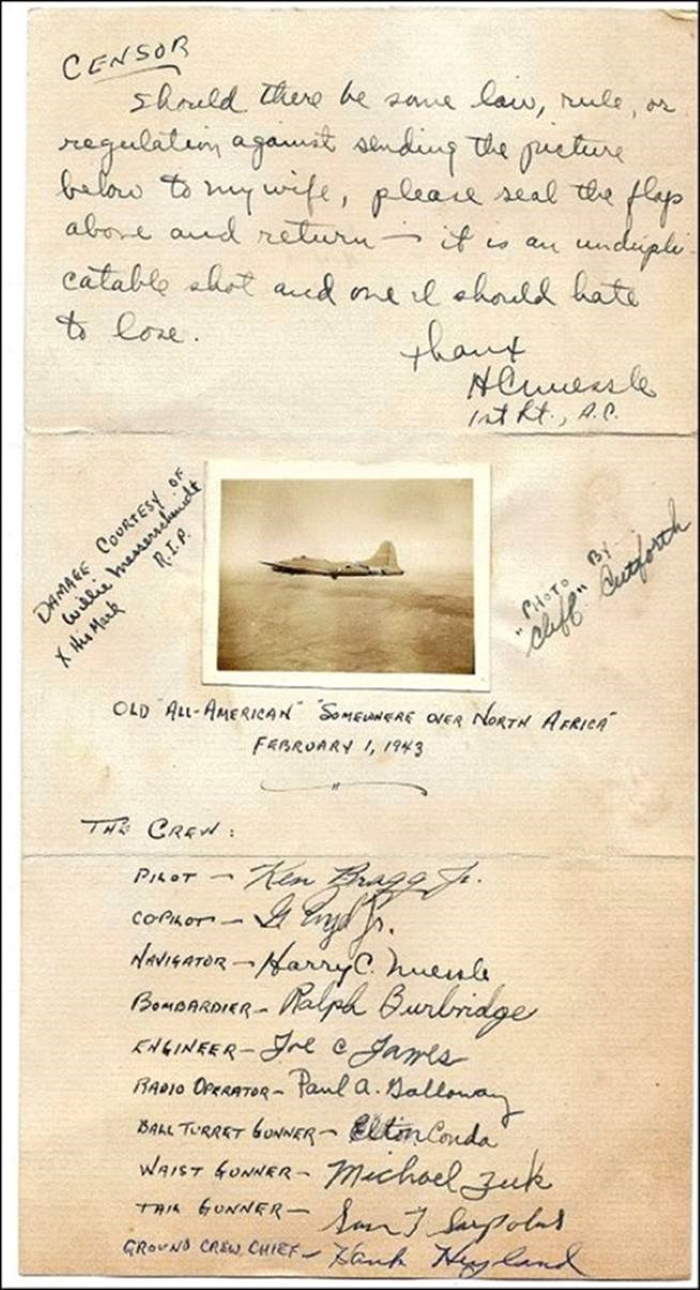 CENSOR
Should there be some law, rule, or
regulation against sending the picture
below to my wife, please seal the flaps
above and return — it is an undupli-
catable shot and one I should hate
to lose.
Thanx
HCNuessle
1st Lt., A.C.
DAMAGE COURTESY OF
Willie Messerschmidt
X His Mark R.I.P.
"PHOTO BY
"Cliff" Cutforth
OLD "ALL-AMERICAN" "SOMEWHERE OVER NORTH AFRICA"
FEBRUARY 1, 1943
THE CREW:
PILOT — Ken Bragg Jr.
COPILOT — G Jr.
NAVIGATOR — Harry C. Nuessle
BOMBARDIER — Ralph Burbridge
ENGINEER — Joe C James
RADIO OPERATOR — Paul A. Galloway
BALL TURRET GUNNER — Elton Conda
WAIST GUNNER — Michael Zuk
TAIL GUNNER — Sam T Sarpolus
GROUND CREW CHIEF — Hank Hyland